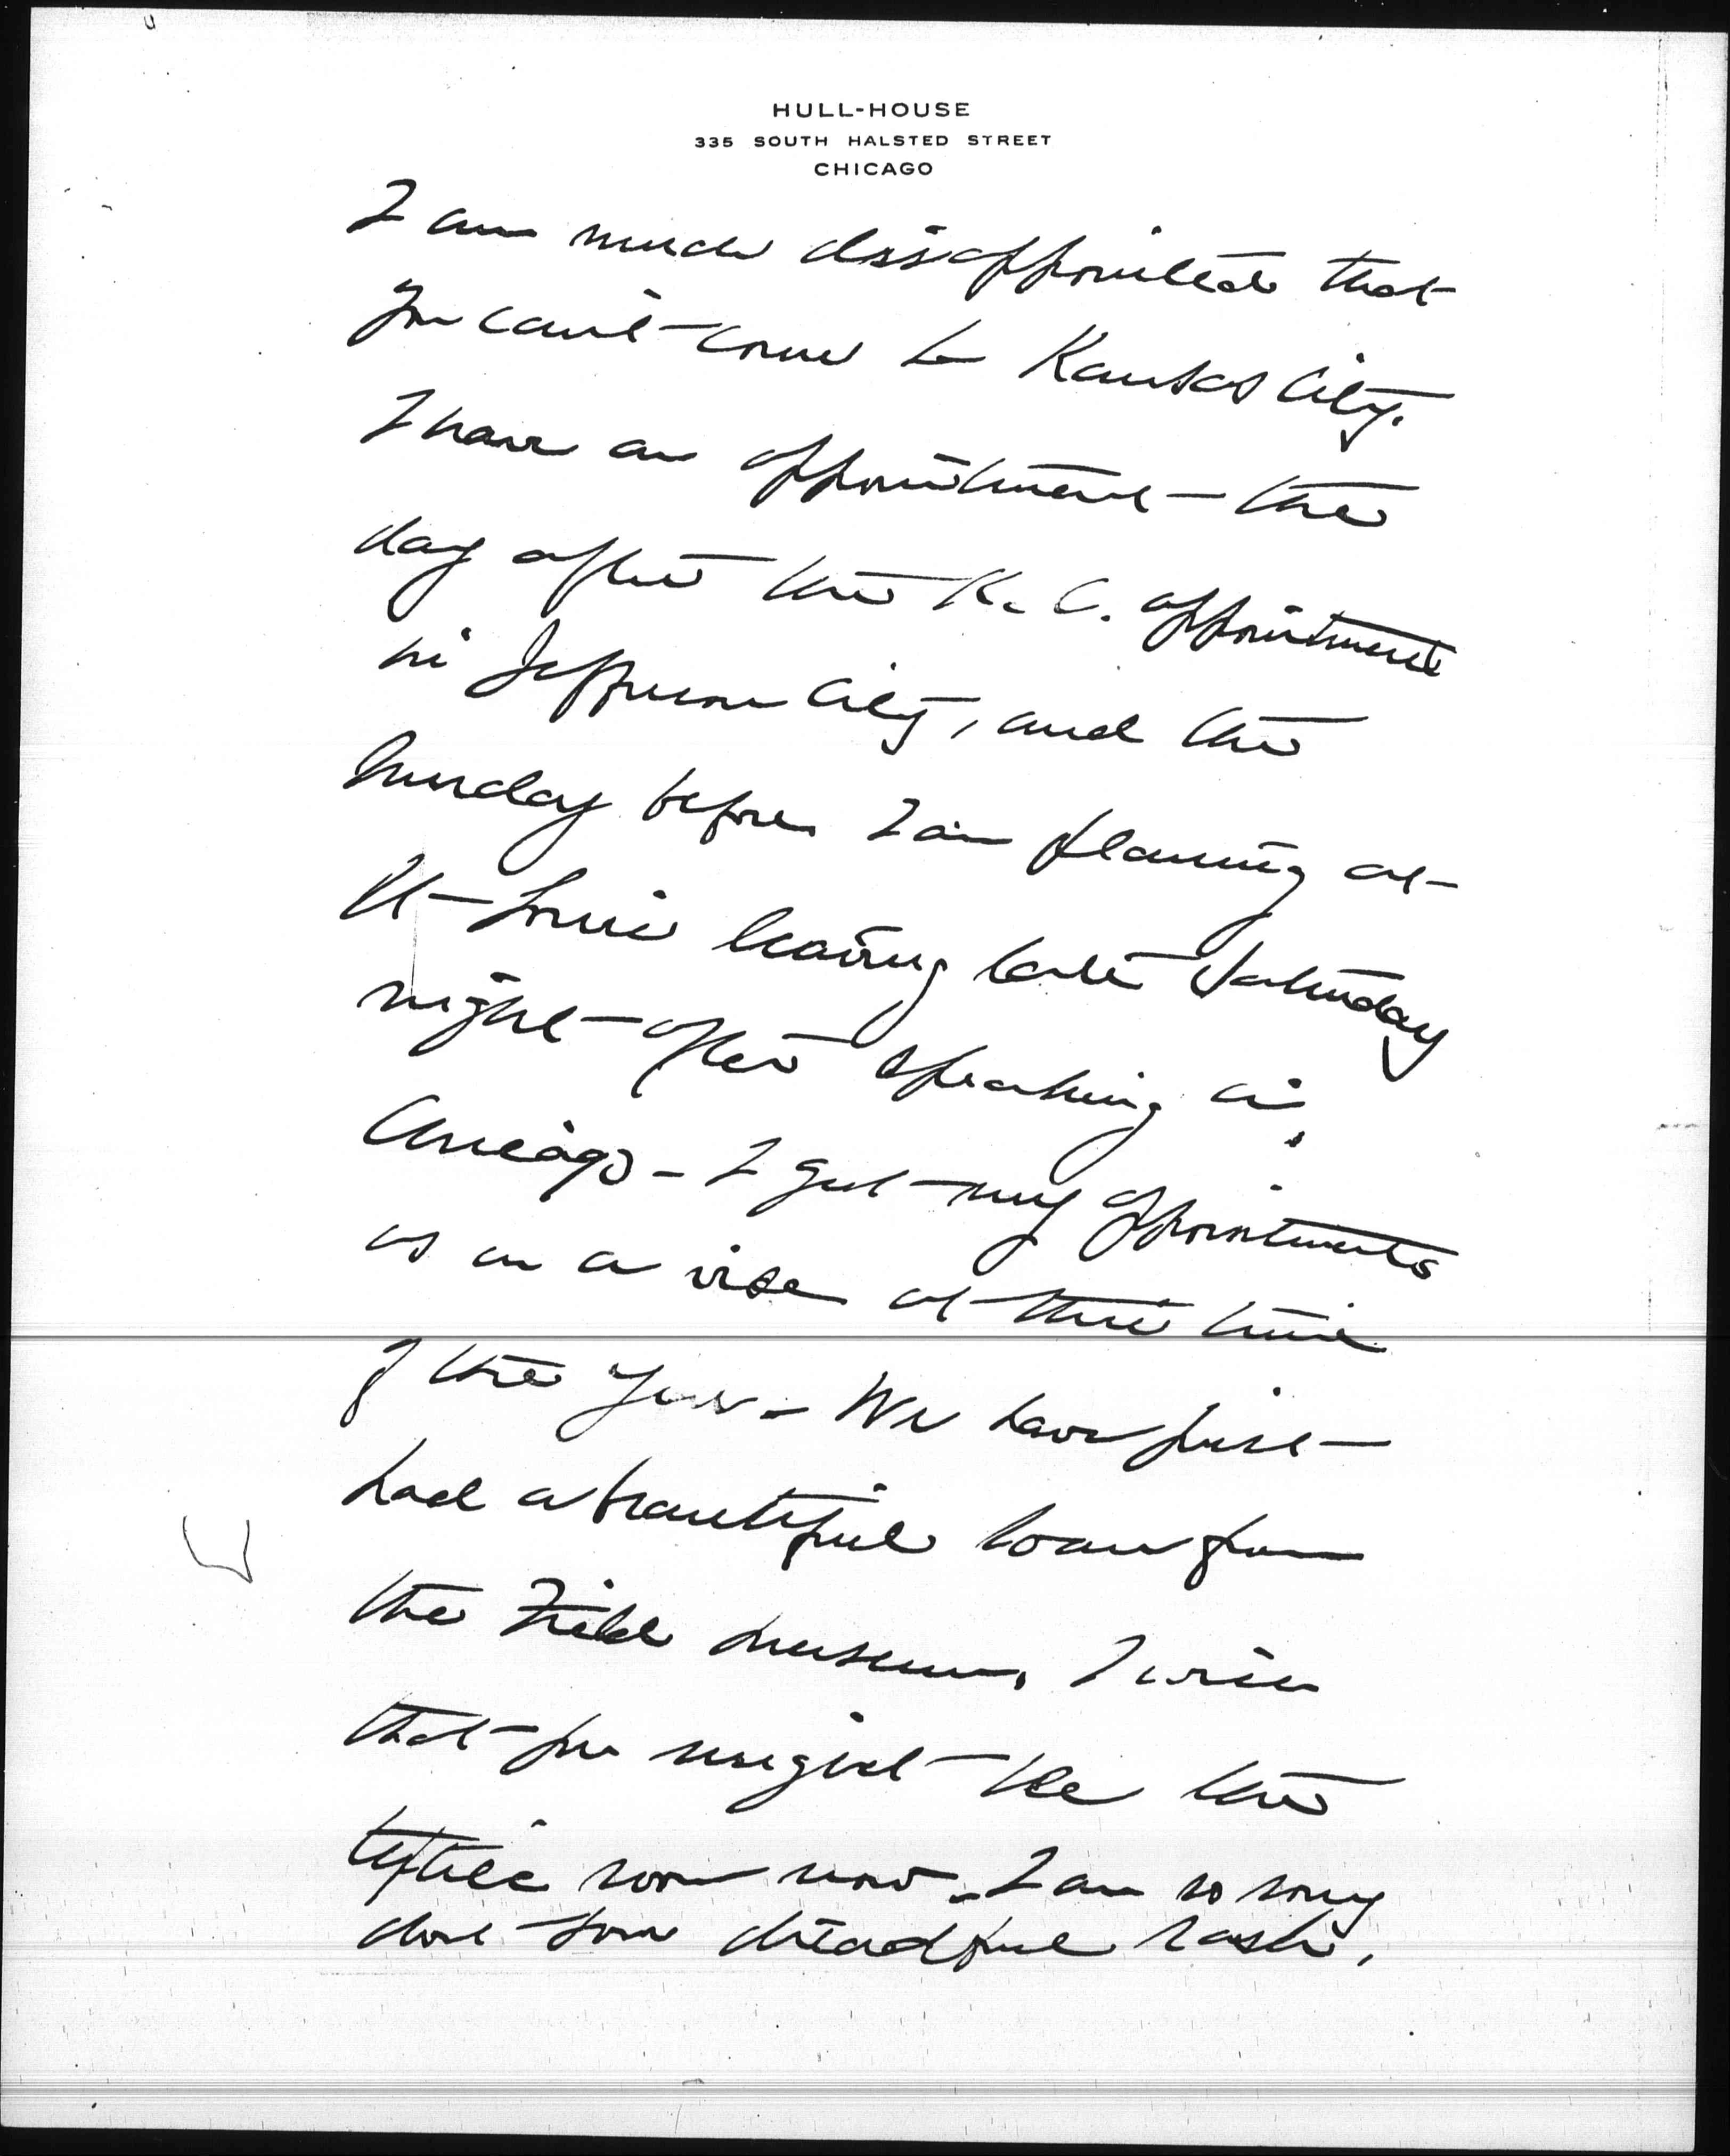 HULL-HOUSE
335 SOUTH HALSTED STREET
CHICAGO
I am much disappointed that
you can't come to Kansas City.
I have an appointment the
day after the K. C. appointment
in Jefferson City, and the
Sunday before I am planning at
St Louis leaving late Saturday
night after speaking in
Chicago - I get my appointments
as in a vise at this time
of the year - We have just
had a beautiful loan from
the Field Museum, I wish
that you might see the
textile room now - I am so sorry
about your dreadful rash,